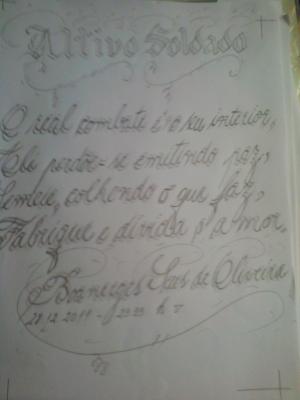 Altivo Soldado
O real combate é o seu interior,
Ele perdoe-se emitindo paz,
Semeie, colhendo o que faz,
Fabrique e divida o amor.
Boanerges Saes de Oliveira
20.12.2019 - 23:33 h